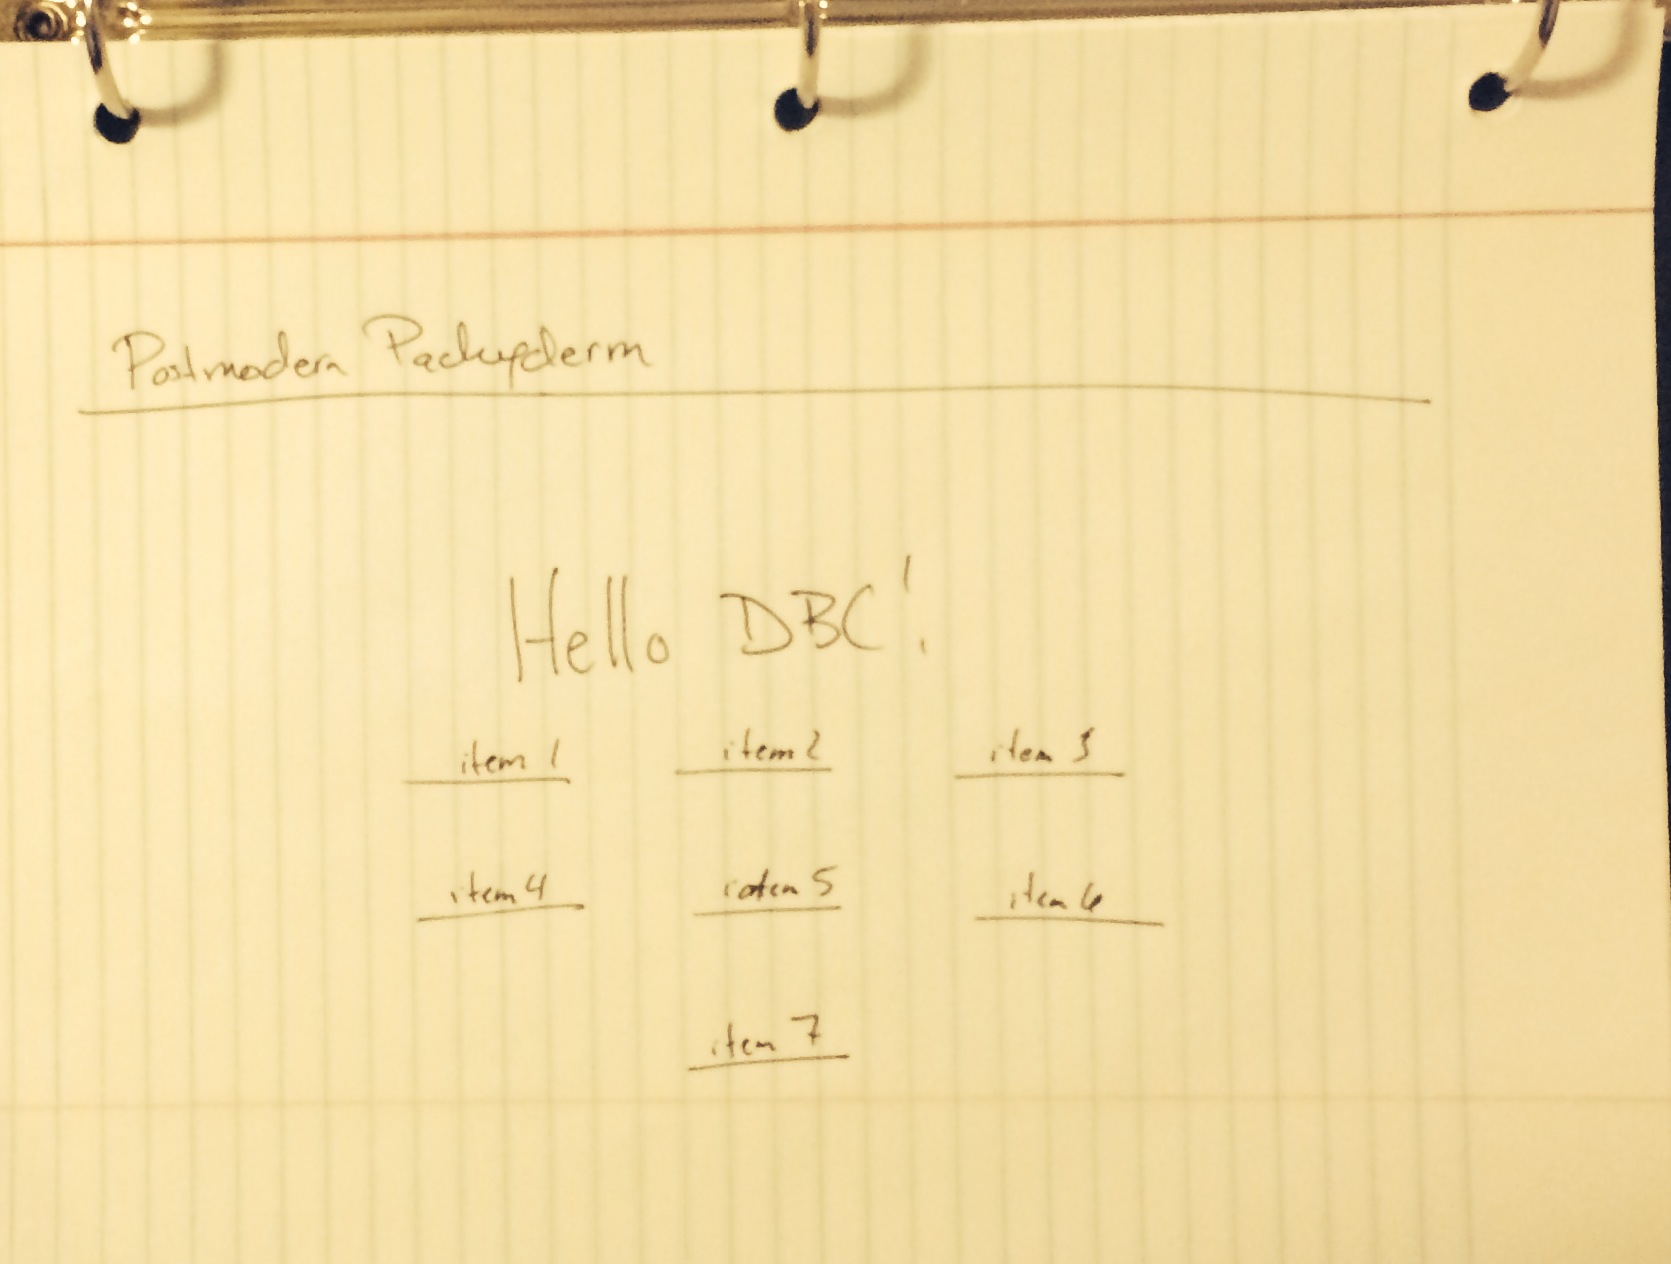 Postmodern Pachyderm
Hello DBC!
item 1 item 2 item 3
item 4 item 5 item 6
item 7